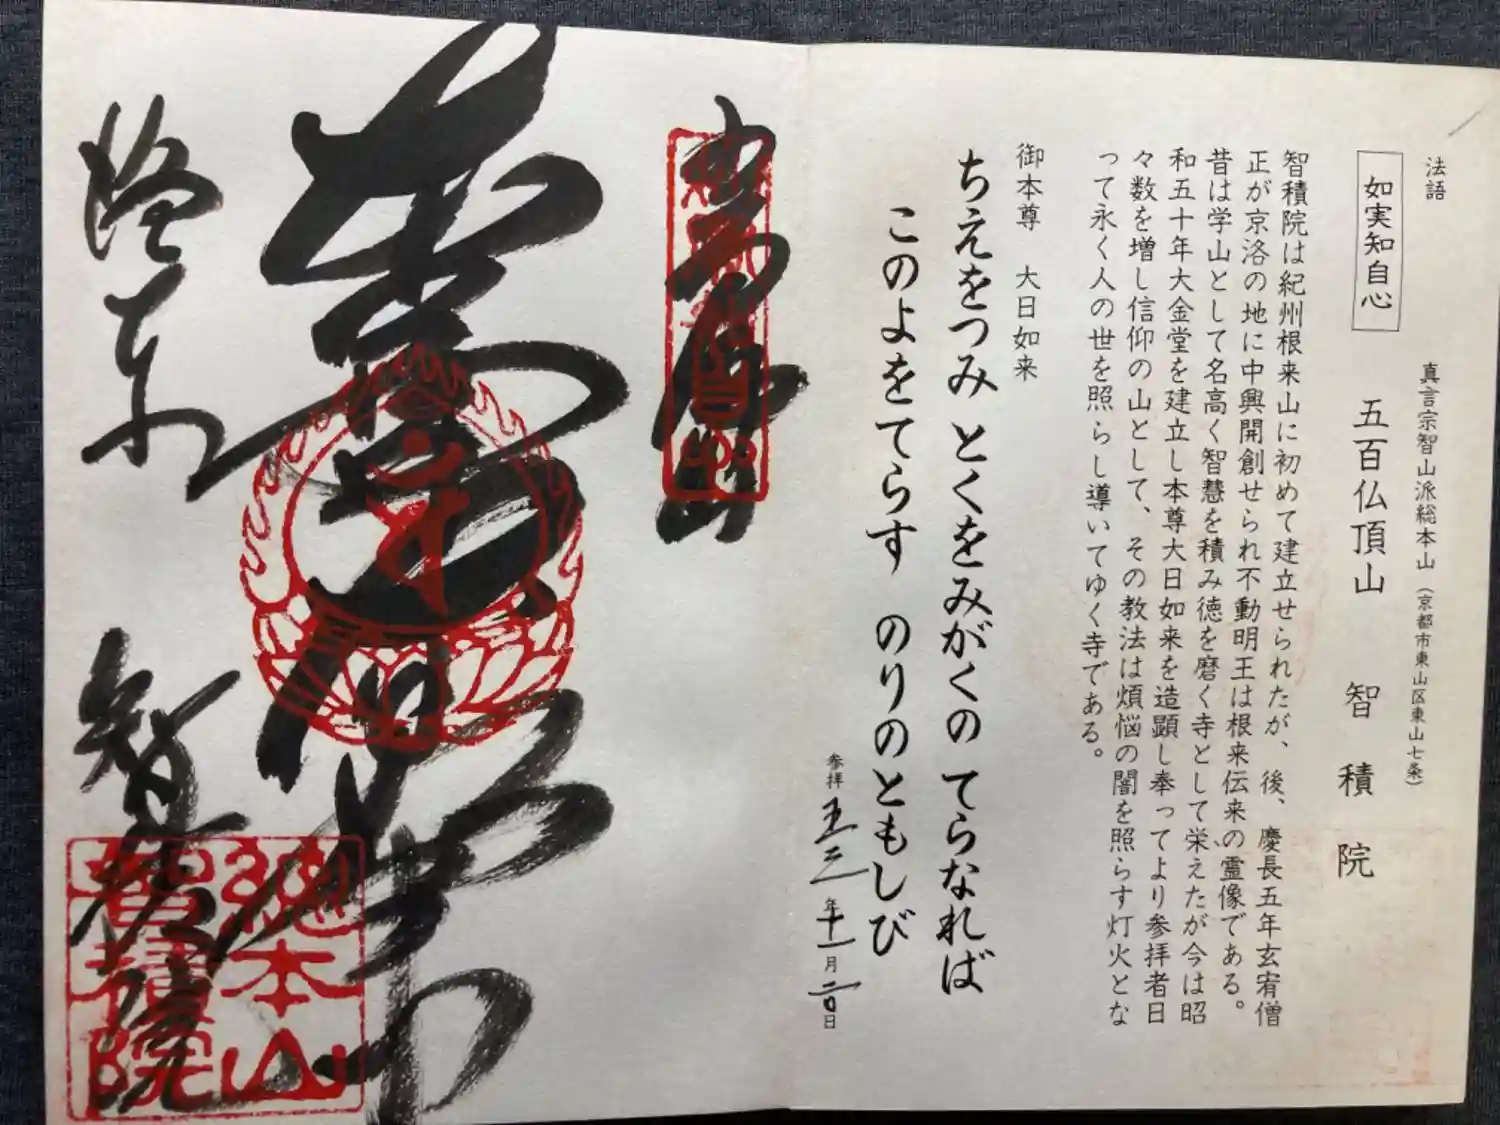 法語 真言宗智山派総本山（京都市東山区東山七条）
如実知自心 五百仏頂山 智積院
智積院は紀州根来山に初めて建立せられたが、後、慶長五年玄宥僧
正が京洛の地に中興開創せられ不動明王は根来伝来の霊像である。
昔は学山として名高く智慧を積み徳を磨く寺として栄えたが今は昭
和五十年大金堂を建立し本尊大日如来を造顕し奉ってより参拝者日
々数を増し信仰の山として、その教法は煩悩の闇を照らす灯火とな
って永く人の世を照らし導いてゆく寺である。
御本尊 大日如来
ちえをつみ とくをみがくの てらなれば
このよをてらす のりのともしび
参拝 五三年十一月二〇日
洛東 智積院
総本山
智積院